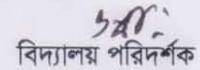 বিদ্যালয় পরিদর্শক